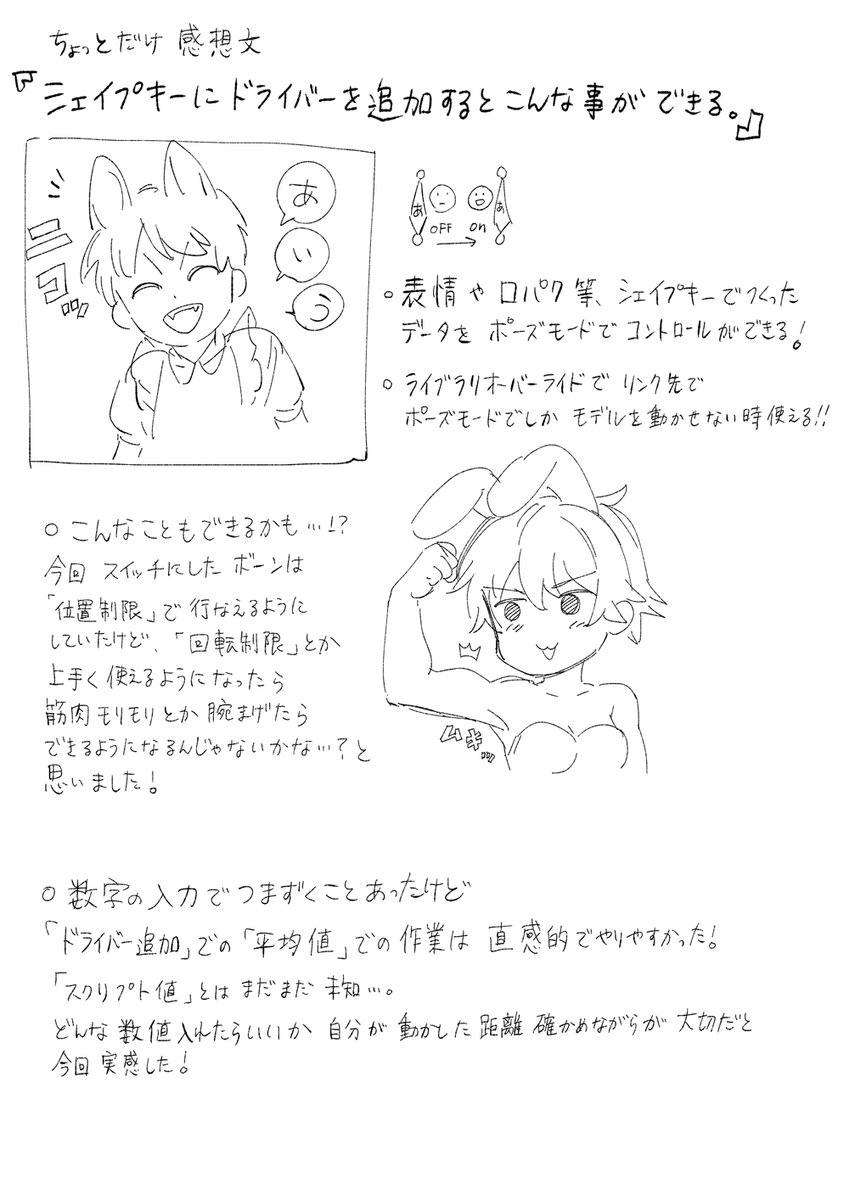 ちょっとだけ 感想文
『シェイプキーにドライバーを追加するとこんな事ができる。』
ニコッ
あ
い
う
あ
あ
OFF
on
○ 表情や口パク等、シェイプキーでつくった
データを ポーズモードで コントロールができる!
○ ライブラリオーバーライドで リンク先で
ポーズモードでしか モデルを動かせない時使える!!
○ こんなこともできるかも…!?
今回 スイッチにした ボーンは
「位置制限」で 行なえるように
していたけど、「回転制限」とか
上手く使えるようになったら
筋肉モリモリとか 腕まげたら
できるようになるんじゃないかな…?と
思いました!
ムキッ
○ 数字の入力で つまずくことあったけど
「ドライバー追加」での「平均値」での作業は 直感的でやりやすかった!
「スクリプト値」とは まだまだ 未知…。
どんな 数値入れたらいいか 自分が 動かした 距離 確かめながらが 大切だと
今回 実感した!